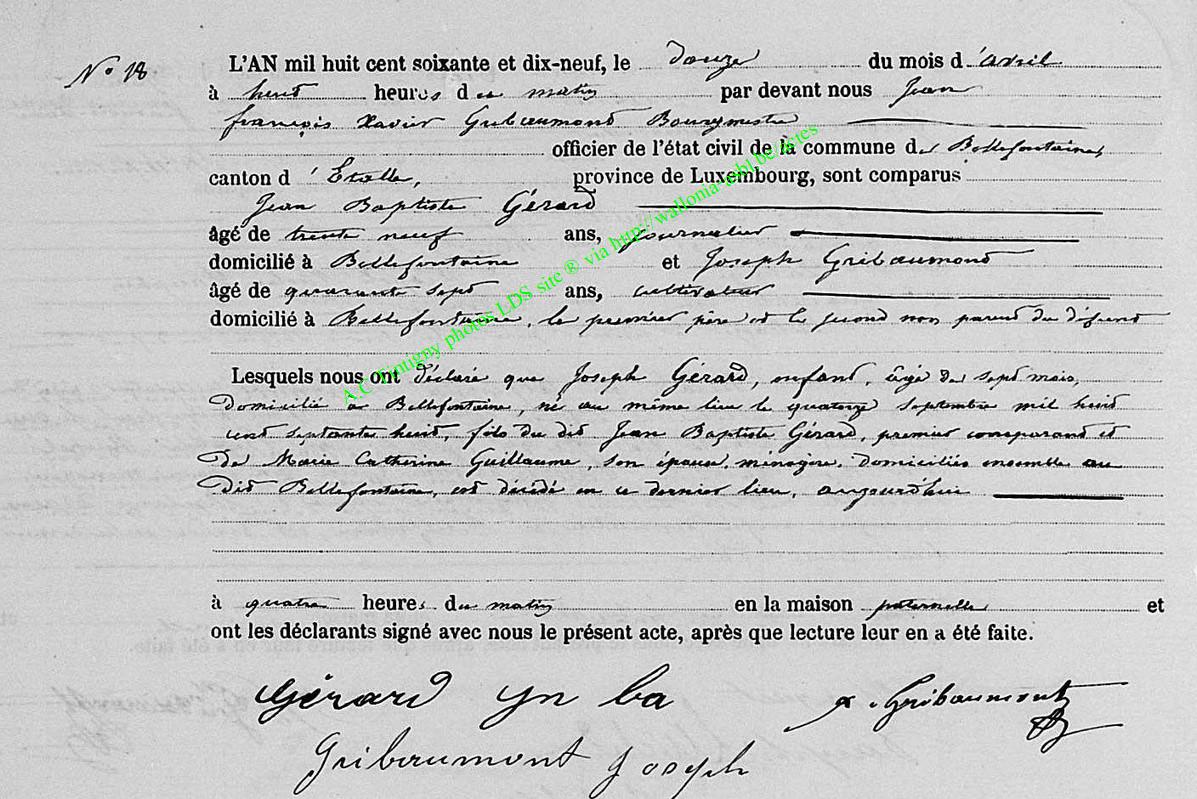 N° 18
L'AN mil huit cent soixante et dix-neuf, le douze du mois d'avril
à huit heures du matin par devant nous Jean
françois Xavier Gribaumont Bourgmestre
officier de l'état civil de la commune de Bellefontaine,
canton d'Etalle, province de Luxembourg, sont comparus
Jean Baptiste Gérard
âgé de trente neuf ans, journalier
domicilié à Bellefontaine et Joseph Gribaumont
âgé de quarante sept ans, cultivateur
domicilié à Bellefontaine, le premier père et le second non parent du défunt
Lesquels nous ont déclaré que Joseph Gérard, enfant, âgé de sept mois,
domicilié à Bellefontaine, né au même lieu le quatorze septembre mil huit
cent septante huit, fils du dit Jean Baptiste Gérard, premier comparant et
de Marie Catherine Guillaume, son épouse, ménagère, domiciliés ensemble au
dit Bellefontaine, est décédé en ce dernier lieu, aujourd'hui
à quatre heures du matin en la maison paternelle et
ont les déclarants signé avec nous le présent acte, après que lecture leur en a été faite.
Gérard jn ba
Gribaumont
Gribaumont Joseph
A.C. Tintigny photos LDS site ® via http://wallonia-asbl.be/actes